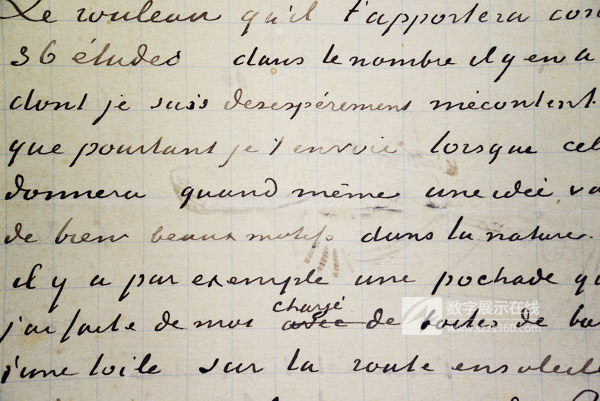 Le rouleau qu'il t'apportera con
36 études dans le nombre il y en a
dont je suis desespérement mécontent
que pourtant je t'envoie lorsque cel
donnera quand même une idée va
de bien beaux motifs dans la nature.
il y a par exemple une pochade qu
chargé
j'ai faite de moi avec de boites de ba
d'une toile sur la route ensoleil
数字展示在线
www.szzs360.com